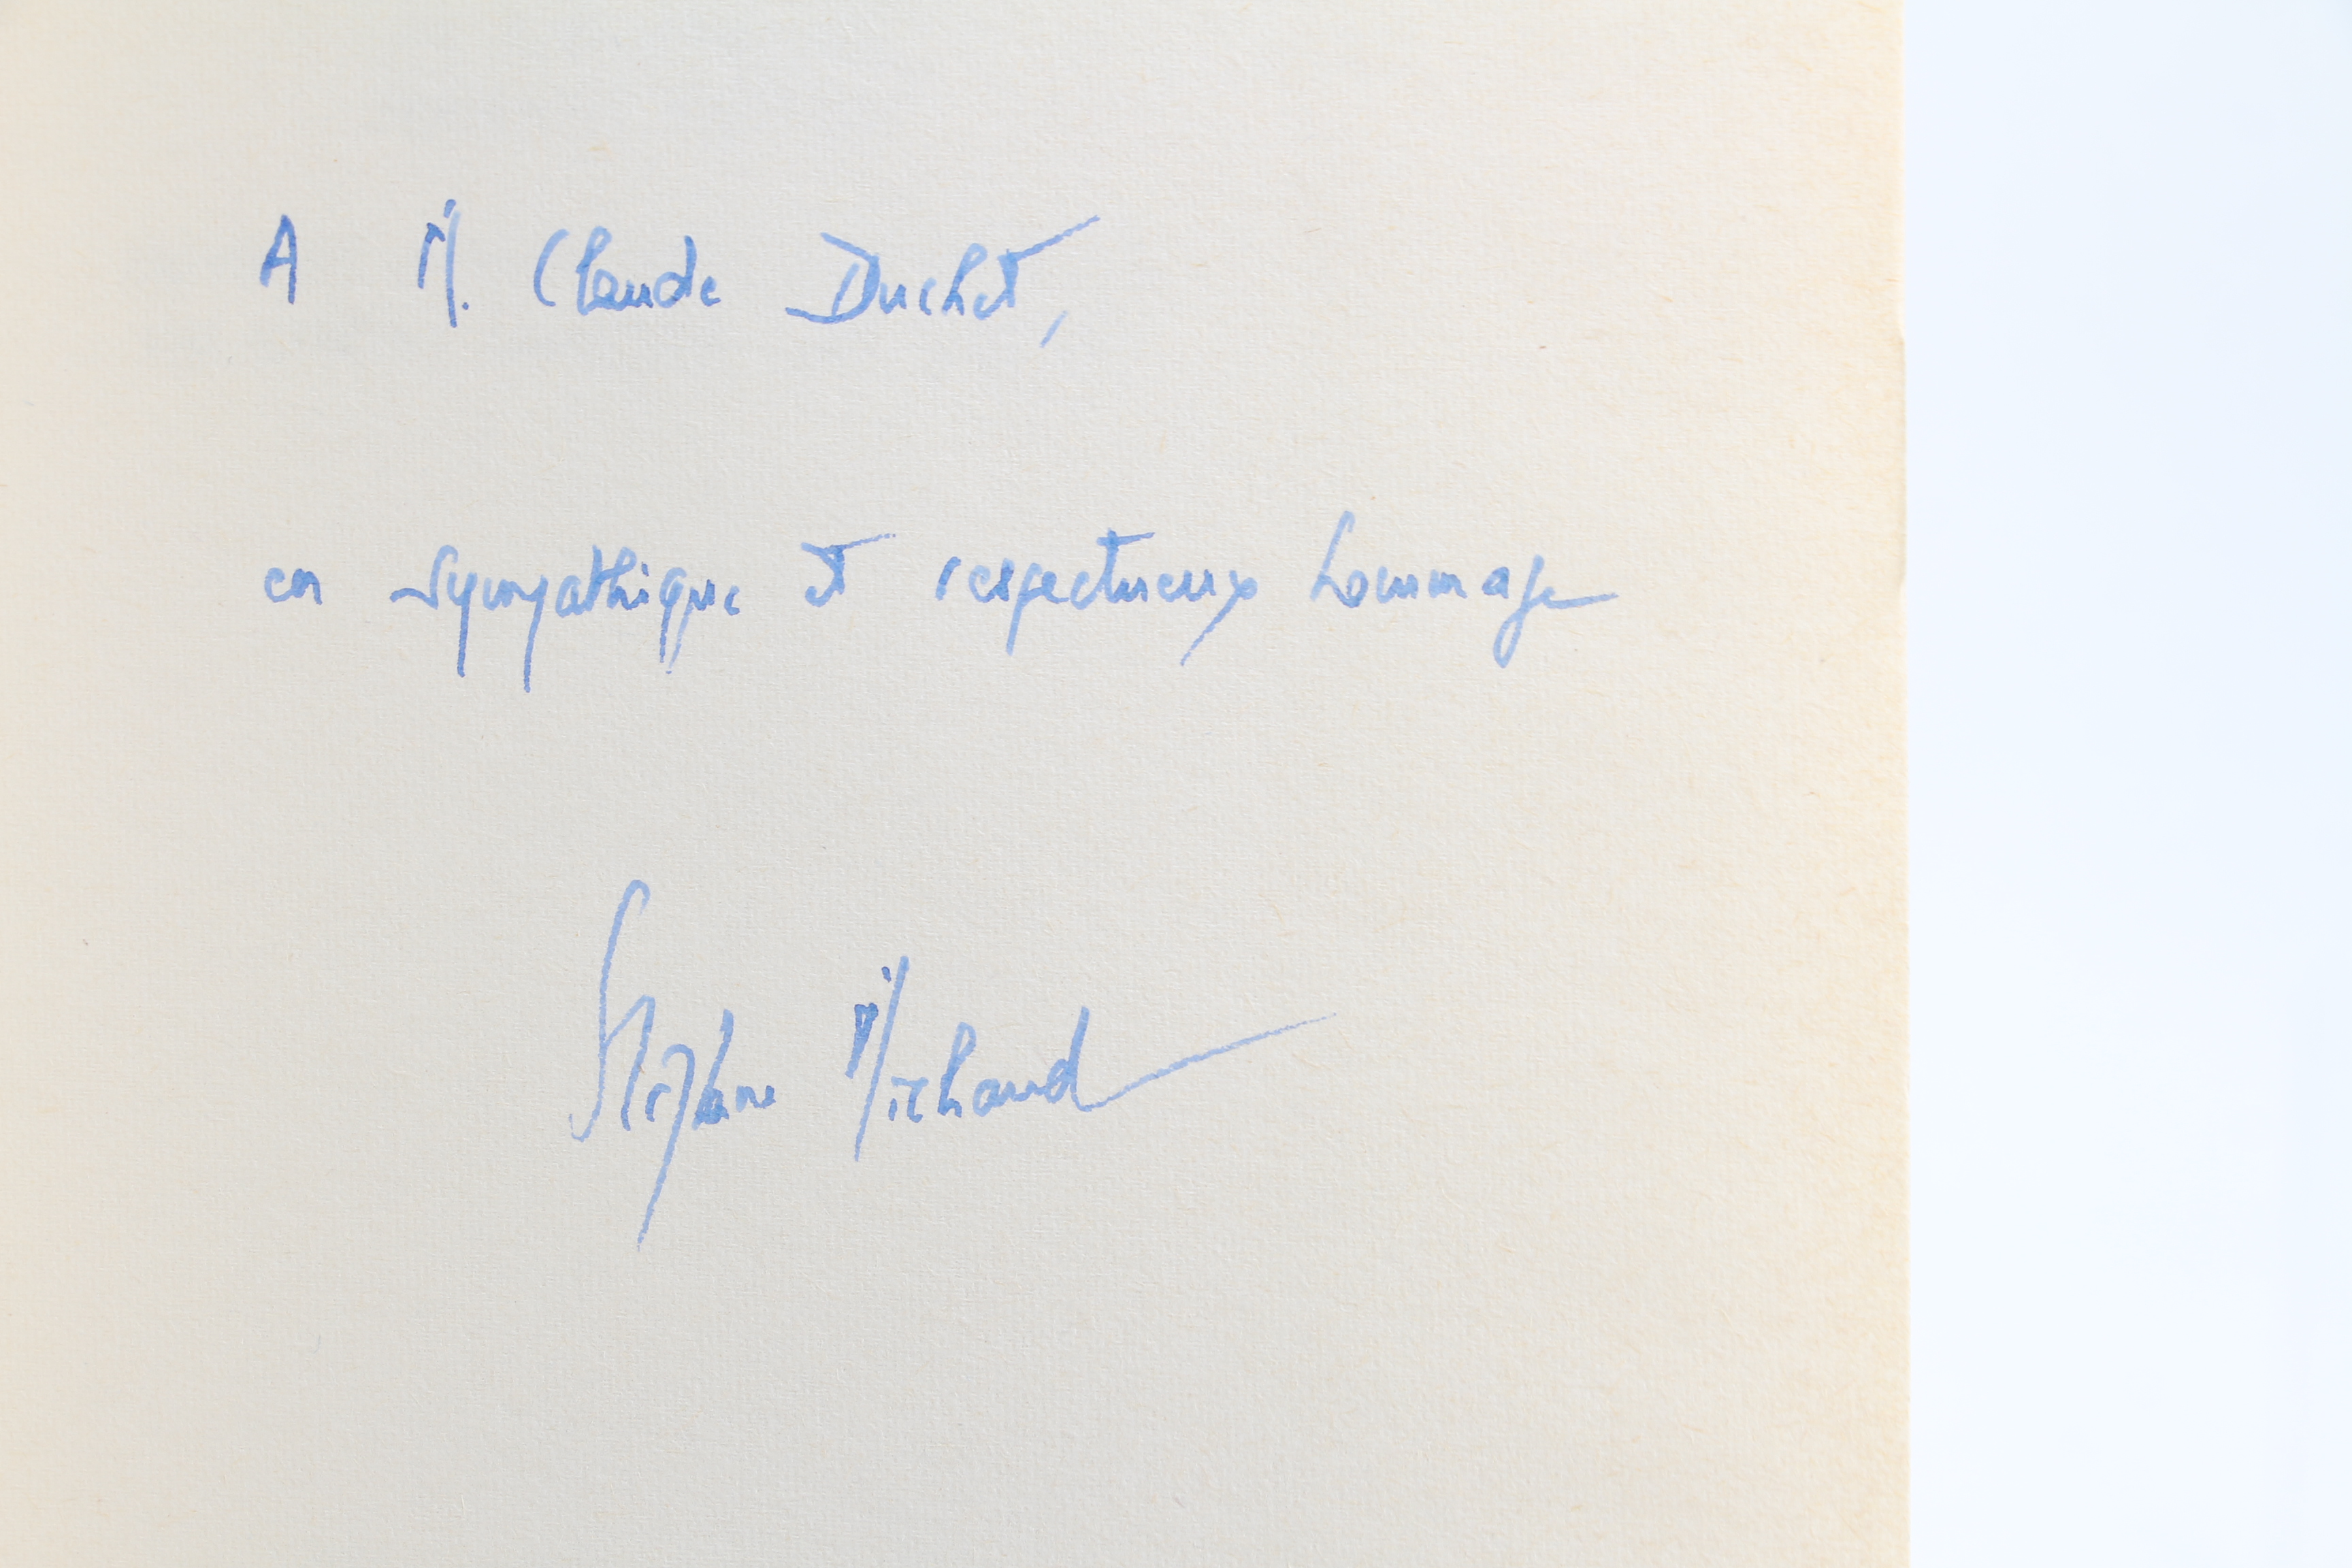 A M. Claude Duchet,
en sympathique et respectueux hommage
Stéphane Michaud